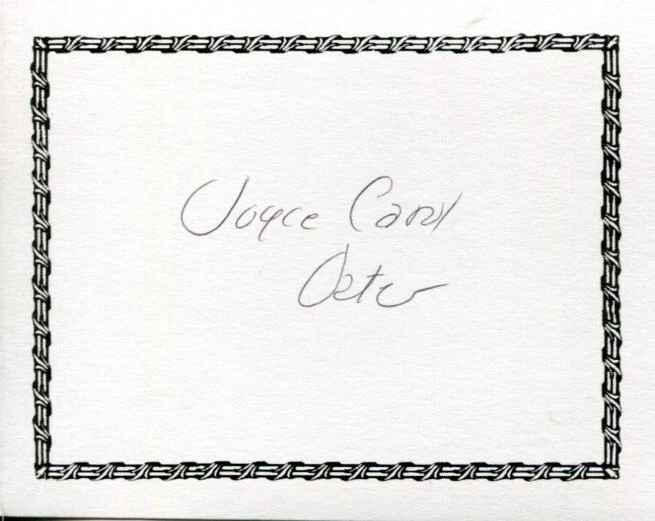 Joyce Carol
Oates